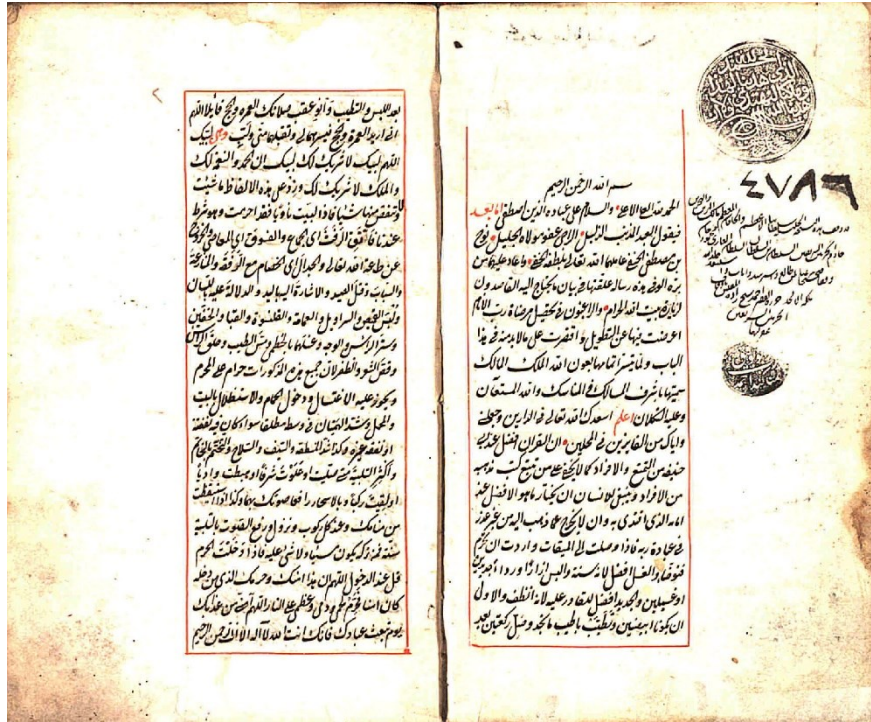 بسم الله الرحمن الرحيم
الحمد لله العلي الاعلى والسلام على عباده الذين اصطفى اما بعد
فيقول العبد المذنب الذليل الراجي عفو مولاه الجليل نوح
بن مصطفى الحنفي عاملهما الله تعالى بلطفه الخفي واعاد عليهما من
بره الوفي هذه رسالة علقتها في بيان ما يحتاج اليه القاصدون
لزيارة بيت الله الحرام والراغبون في تحصيل مرضاة رب الانام
اعرضت فيها عن التطويل واقتصرت على ما لا بد منه في هذا
الباب ولما تيسر اتمامها بعون الله الملك المالك
سميتها اشرف المسالك في المناسك والله المستعان
وعليه التكلان اعلم اسعدك الله تعالى في الدارين وجعلني
واياك من الفايزين في المحلين ان القران افضل عند ابي
حنيفة من التمتع والافراد كما لا يخفى على من تتبع كتب مذهبه
من الافراد وينبغي للانسان ان يختار ما هو الافضل عند
امامه الذي اقتدى به وان لا يخرج عما ذهب اليه من غير عذر
في عبادة ربه فاذا وصلت الى الميقات واردت ان تحرم
فتوضأ والغسل افضل لانه سنة والبس ازارا ورداء جديدين
او غسيلين والجديد افضل للقادر عليه لانه انظف والاولى
ان يكونا ابيضين وتطيب باطيب ما تجد وصل ركعتين بعد
٤٧٨٦
بعد اللبس والتطيب وانو عقب صلاتك العمرة والحج قايلا اللهم
اني اريد العمرة والحج فيسرهما لي وتقبلهما مني ولب وهي لبيك
اللهم لبيك لا شريك لك لبيك ان الحمد والنعمة لك
والملك لا شريك لك وزد على هذه الالفاظ ما شئت
ولا تنقص منها شيا فاذا لبيت ناويا فقد احرمت وهو شرط
عندنا فاتق الرفث اي الجماع والفسوق اي المعاصي والخروج
عن طاعة الله تعالى والجدال اي الخصام مع الرفقة والمنازعة
والسباب وقتل الصيد والاشارة اليه باليد والدلالة عليه باللسان
ولبس القميص والسراويل والعمامة والقلنسوة والقباء والخفين
وستر الراس والوجه وغسلهما بالخطمي ومس الطيب وحلق الراس
وقص الشعر والظفر لان جميع هذه المذكورات حرام على المحرم
ويجوز عليه الاغتسال ودخول الحمام والاستظلال بالبيت
والمحمل وشد الهميان في وسط مطلقا سوا كان فيه نفقته
او نفقة غيره وكذا شد المنطقة والسيف والسلاح والتختم بالخاتم
واكثر التلبية متى صليت او علوت شرفا او هبطت واديا
او لقيت ركبا وبالاسحار رافعا صوتك بهما وكذا اذا استيقظت
من منامك وعند كل ركوب ونزول ورفع الصوت بالتلبية
سنة فمن تركه يكون مسيا ولا شي عليه فاذا دخلت الحرم
قل عند الدخول اللهم ان هذا امنك وحرمك الذي من دخله
كان امنا فحرم لحمي ودمي وعظمي على النار اللهم امني من عذابك
يوم تبعث عبادك فانك انت الله لا اله الا انت الرحمن الرحيم